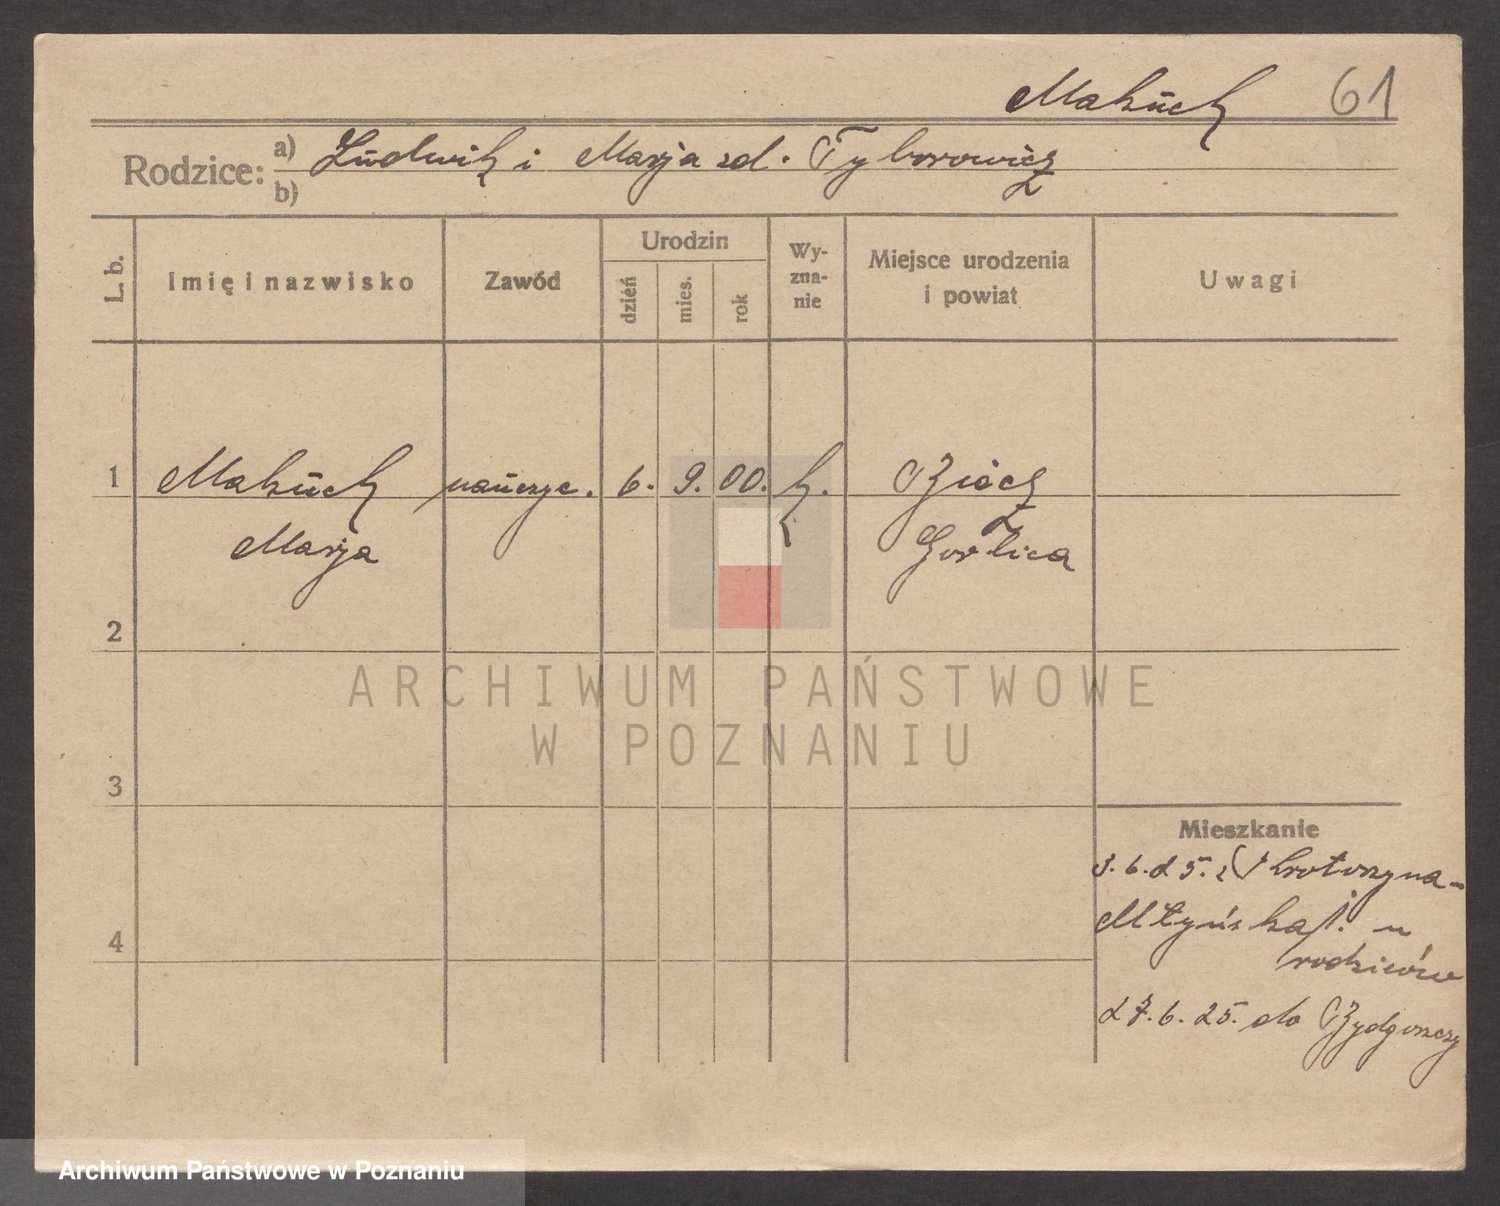 Makuch 61
Rodzice: a) Ludwik i Marja zd. Tyborowicz
b)
L. b. Imię i nazwisko Zawód Urodzin dzień mies. rok Wy-zna-nie Miejsce urodzenia i powiat Uwagi
1 Makuch nauczyc. 6. 9. 00. k. Biecz
Marja Gorlica
2
ARCHIWUM PAŃSTWOWE
W POZNANIU
3
Mieszkanie
3.6.25. z Krotoszyna-
4 Młyńska 1. u
rodziców
27.6.25. do Bydgoszczy
Archiwum Państwowe w Poznaniu